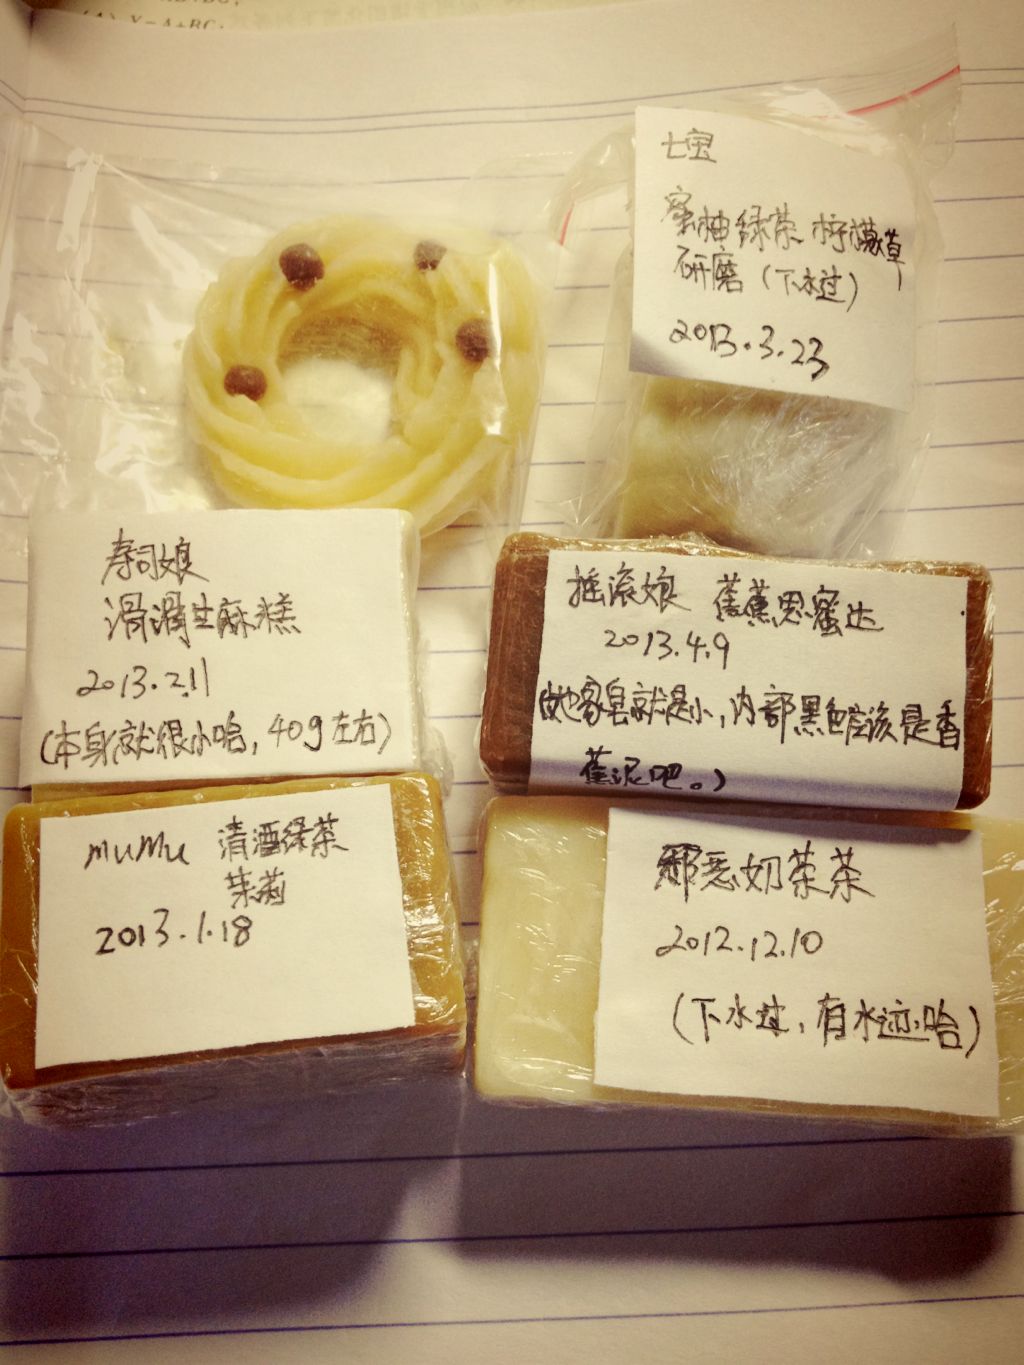 (A) Y=A+BC;
七宝
蜜柚绿茶 柠檬草
研磨（下水过）
2013.3.23
寿司娘
滑滑生麻糕
2013.2.11
（本身就很小哈，40g左右）
摇滚娘 蕉蕉思蜜达
2013.4.9
（她家皂就是小，内部黑色应该是香
蕉泥吧。）
MuMu 清酒绿茶
茉莉
2013.1.18
邪恶奶茶茶
2012.12.10
（下水过，有水迹哈）